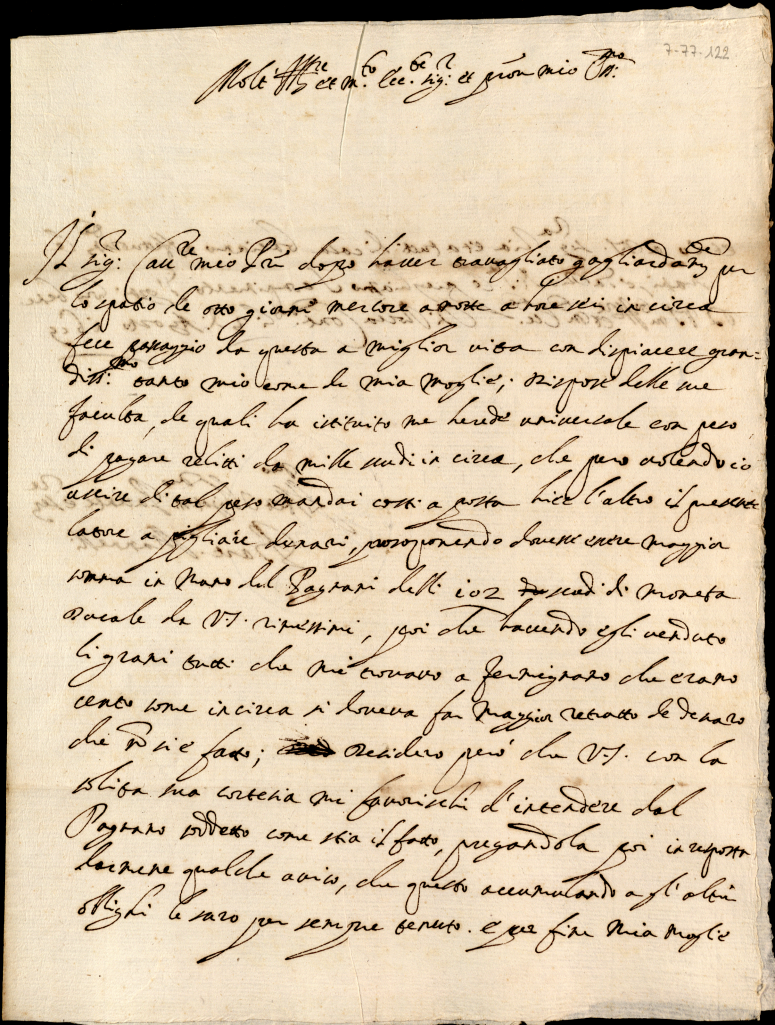 7-77-122
Molt' Ill.re et m.to Ecc.te Sig.r et pron mio
Il Sig.r Cau.re mio dopo hauer trauagliato gagliardam.te per
lo spatio de otto giorni mercore a notte a hore sei in circa
fece passaggio da questa a miglior uita con dispiacere gran=
diss.mo tanto mio come de mia moglie; dispose delle sue
faculta, de quali ha istituito me herede uniuersale con peso
di pagare relitti da mille scudi in circa, che pero uolendo io
uscire di tal peso mandai costi a posta hier l'altro il presente
latore a pigliare denari, proponendo douesse essere maggior
somma in mano del Pagnani delli 102 scudi di moneta
Ducale da V.S. rimessimi, poi che hauendo egli uenduto
li grani tutti che mi trouauo a fermignano che erano
cento some incirca si doueua far maggior retratto de denaro
che si è fatto; desidero però che V.S. con la
solita sua cortesia mi fauorischi d'intendere dal
Pagnano soddetto come stia il fatto, pregandola poi in risposta
darmene qualche auiso, che questo accumulando a gl'altri
oblighi le sarò per sempre tenuto. e per fine mia moglie